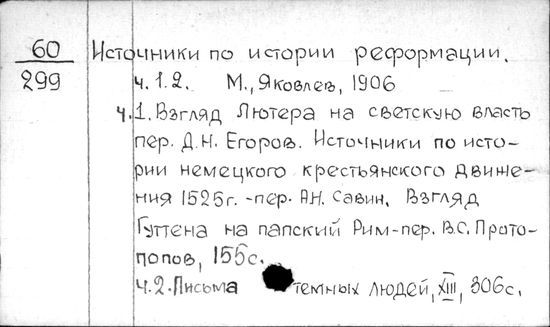 60
299
Источники по истории реформации.
ч. 1. 2. М., Яковлев, 1906
ч. 1. Взгляд Лютера на светскую власть
пер. Д.Н. Егоров. Источники по исто-
рии немецкого крестьянского движе-
ния 1525г. - пер. А.Н. Савин. Взгляд
Гуттена на папский Рим - пер. В.С. Прото-
попов, 155с.
ч. 2. Письма темных людей, XIII, 306с.